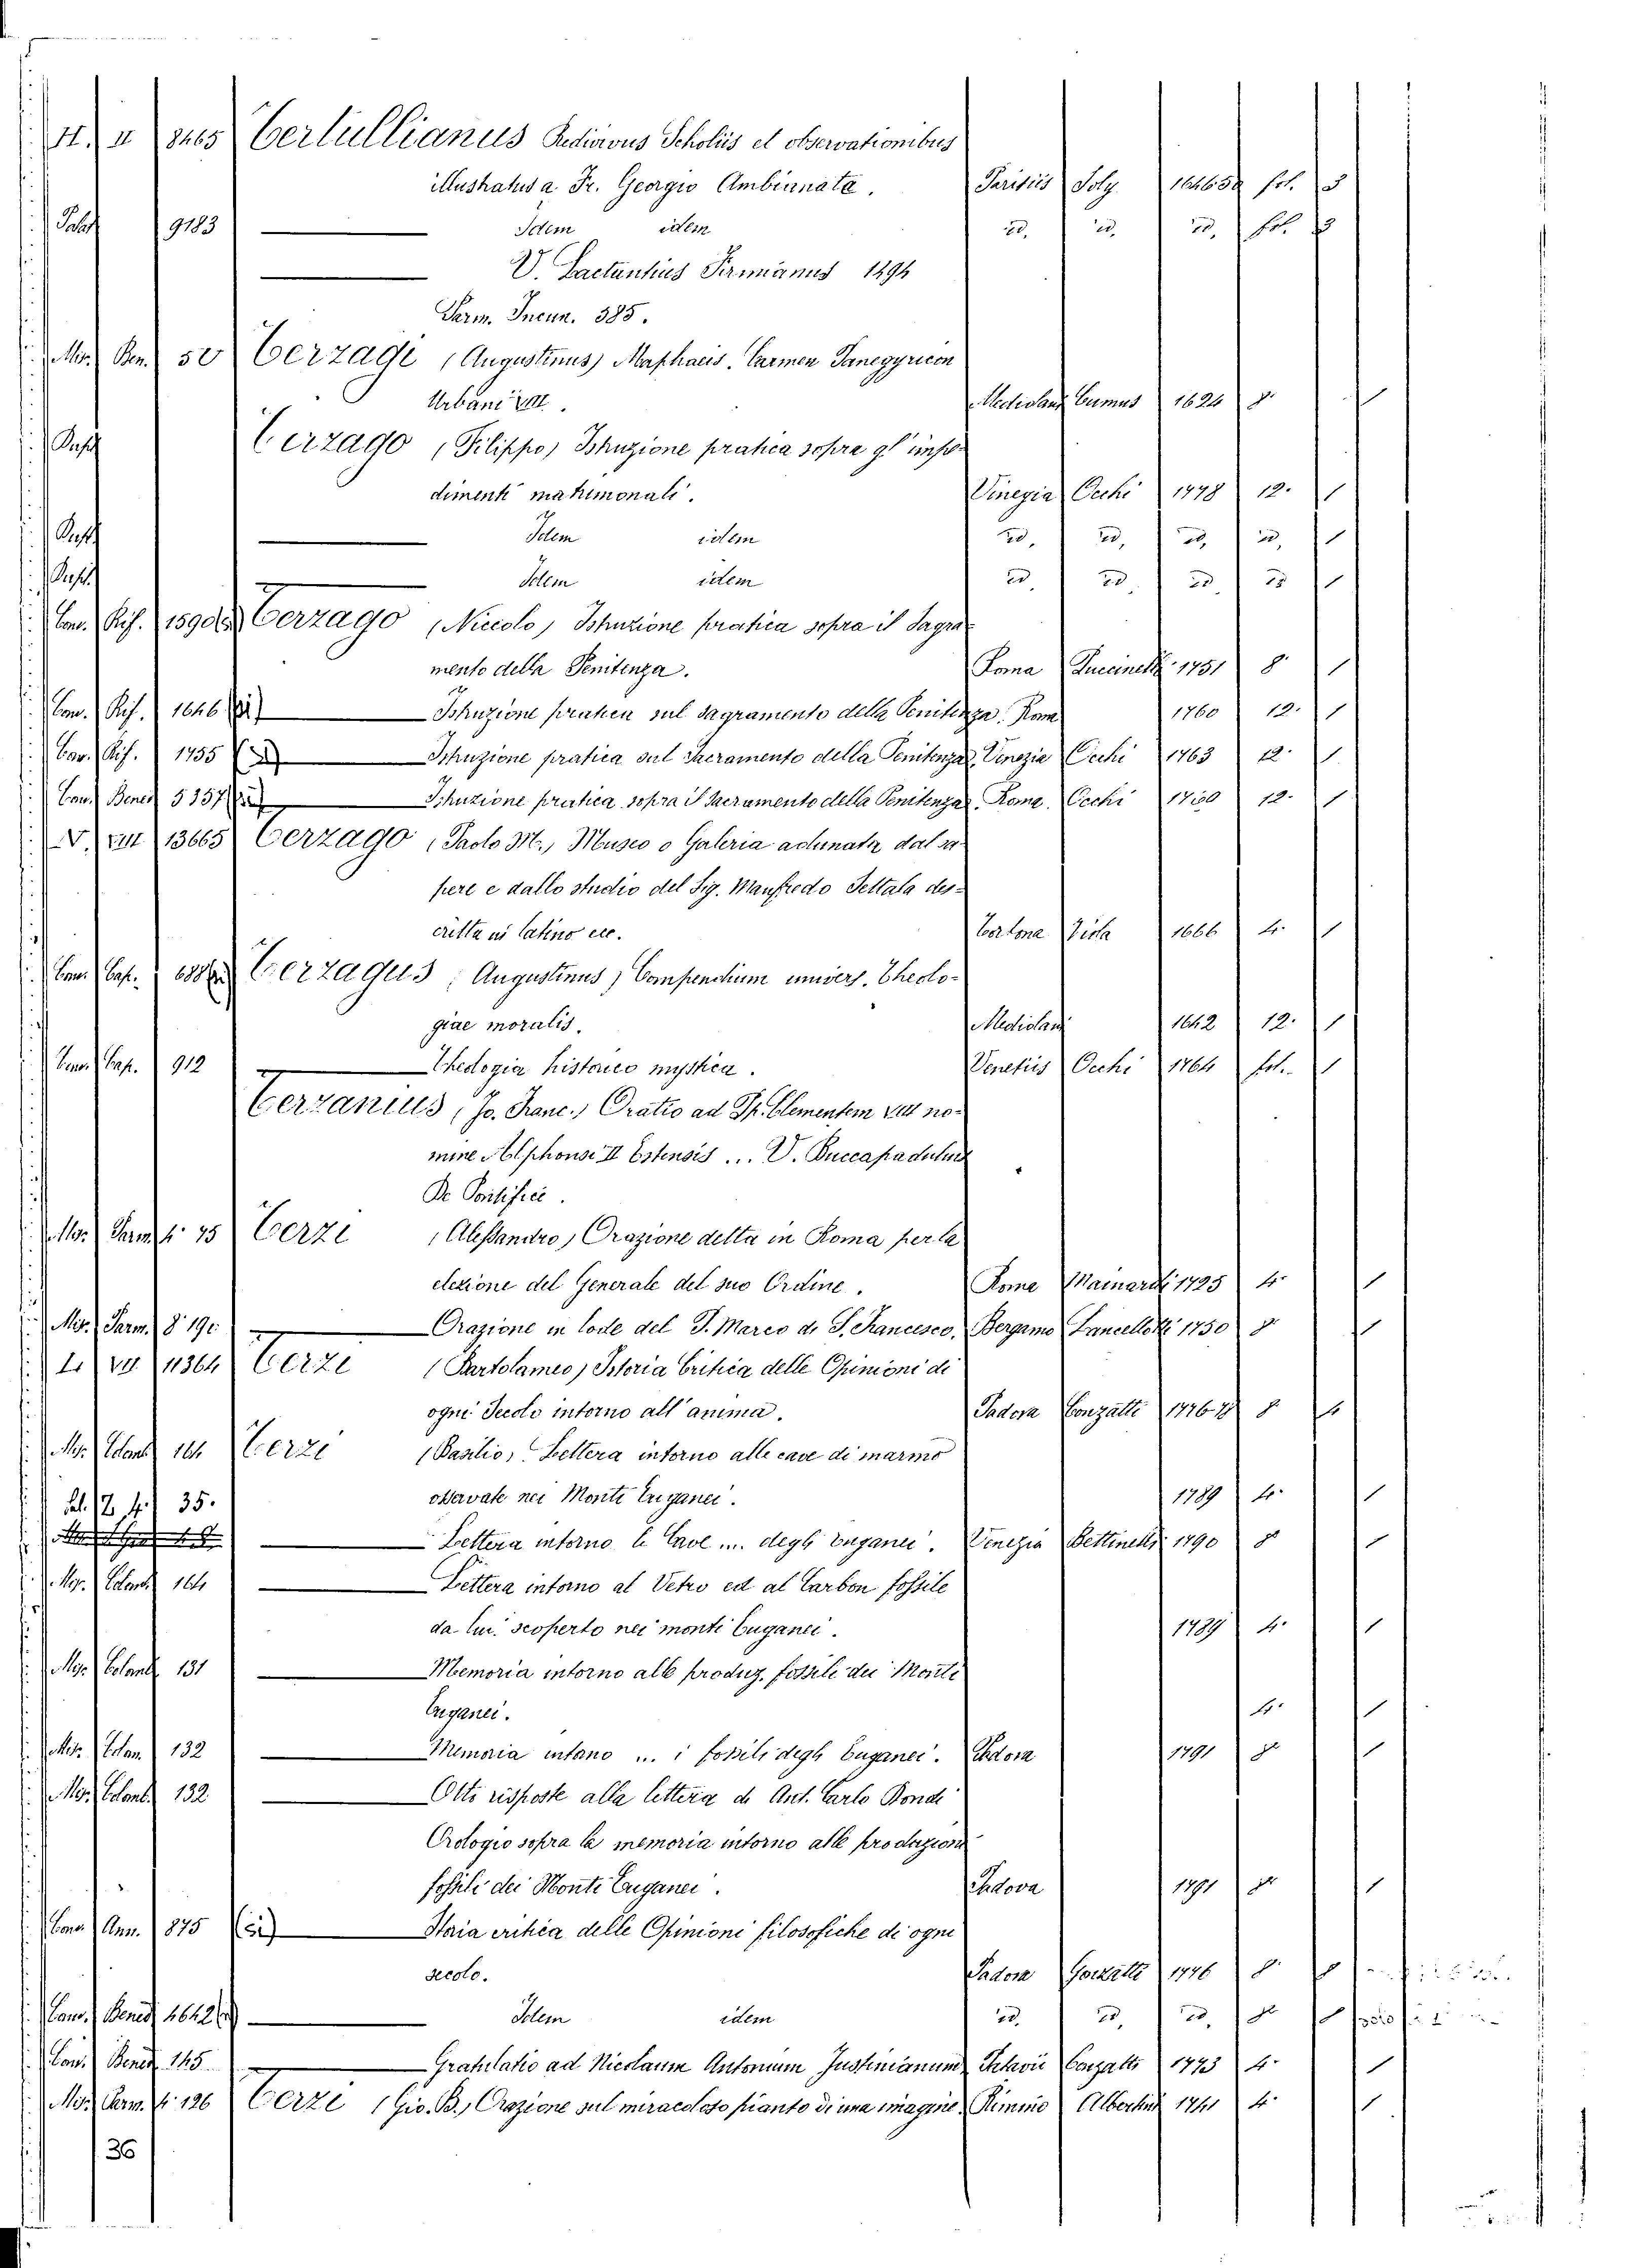 H. II 8465 Tertullianus Redivivus Scholiis et observationibus
illustratus a Fr. Georgio Ambianate. Parisiis Soly 1646.50 fol. 3
Palat 9183 Idem idem id. id. id. fol. 3
V. Lactantius Firmianus 1494
Parm. Incun. 385.
Mis. Ben. 50 Terzagi (Augustinus) Maphaeis. Carmen Panegyricon
Urbani VIII. Mediolani Cumus 1624 8° 1
Terzago (Filippo) Istruzione pratica sopra gl' impe-
dimenti matrimonali. Vinegia Occhi 1778 12. 1
Idem idem id. id. id. id. 1
Idem idem id. id. id. id. 1
Conv. Rif. 1590 Terzago (Niccolo) Istruzione pratica sopra il Sagra-
mento della Penitenza. Roma Puccinelli 1751 8° 1
Conv. Rif. 1646 Istruzione pratica sul sagramento della Penitenza. Roma 1760 12. 1
Conv. Rif. 1755 Istruzione pratica sul Sacramento della Penitenza. Venezia Occhi 1763 12. 1
Conv. Bened 5357 Istruzione pratica sopra il Sacramento della Penitenza. Roma. Occhi 1760 12. 1
V. VIII 13665 Terzago (Paolo M.) Museo o Galeria adunata dal sa-
pere e dallo studio del Sig. Manfredo Settala des-
critta in latino etc. Tortona Viola 1666 4. 1
Conv. Cap. Terzagus (Augustinus) Compendium univers. Theolo-
giae moralis. Mediolani 1642 12. 1
Conv. Cap. 912 Theologia historico mystica. Venetiis Occhi 1764 fol. 1
Terzanius (Jo. Franc.) Oratio ad Pp. Clementem VIII no-
mine Alphonsi II Estensis ... V. Buccapadulius
De Pontifice.
Mis. Parm. 4° 75 Terzi (Alessandro) Orazione detta in Roma per la
elezione del Generale del suo Ordine. Roma Mainardi 1725 4° 1
Mis. Parm. 8° 190 Orazione in lode del P. Marco di S. Francesco. Bergamo Lancellotti 1750 8° 1
11364 Terzi (Bartolameo) Istoria Critica delle Opinioni di
ogni Secolo intorno all' anima. Padova Conzatti 1776.78 8
Mis. Colomb 164 Terzi (Basilio) Lettera intorno alle cave di marmo
35. osservate nei Monti Euganei. 1789 4° 1
Lettera intorno le Cave ... degli Euganei. Venezia Bettinelli 1790 8° 1
Mis. Colomb 164 Lettera intorno al Vetro ed al Carbon fossile
da lui scoperto nei monti Euganei. 1789 4° 1
Mis. Colomb 131 Memoria intorno alle produz. fossili dei Monti
Euganei. 4° 1
Mis. Colom. 132 Memoria intorno ... i fossili degli Euganei. Padova 1791 8° 1
Mis. Colomb. 132 Otto risposte alla lettera di Ant. Carlo Bondi
Orologio sopra la memoria intorno alle produzioni
fossili dei Monti Euganei. Padova 1791 8° 1
Conv. Ann. 875 Storia critica delle Opinioni filosofiche di ogni
secolo. Padova Conzatti 1776 8°
Conv. Bened 4642 Idem idem id. id. id. 8°
Conv. Bened. 145 Gratulatio ad Nicolaum Antonium Justinianum Patavii Conzatti 1773 4° 1
Mis. Parm. 4° 126 Terzi (Gio. B.) Orazione sul miracoloso pianto di una imagine. Rimino Albertini 1741 4° 1
36